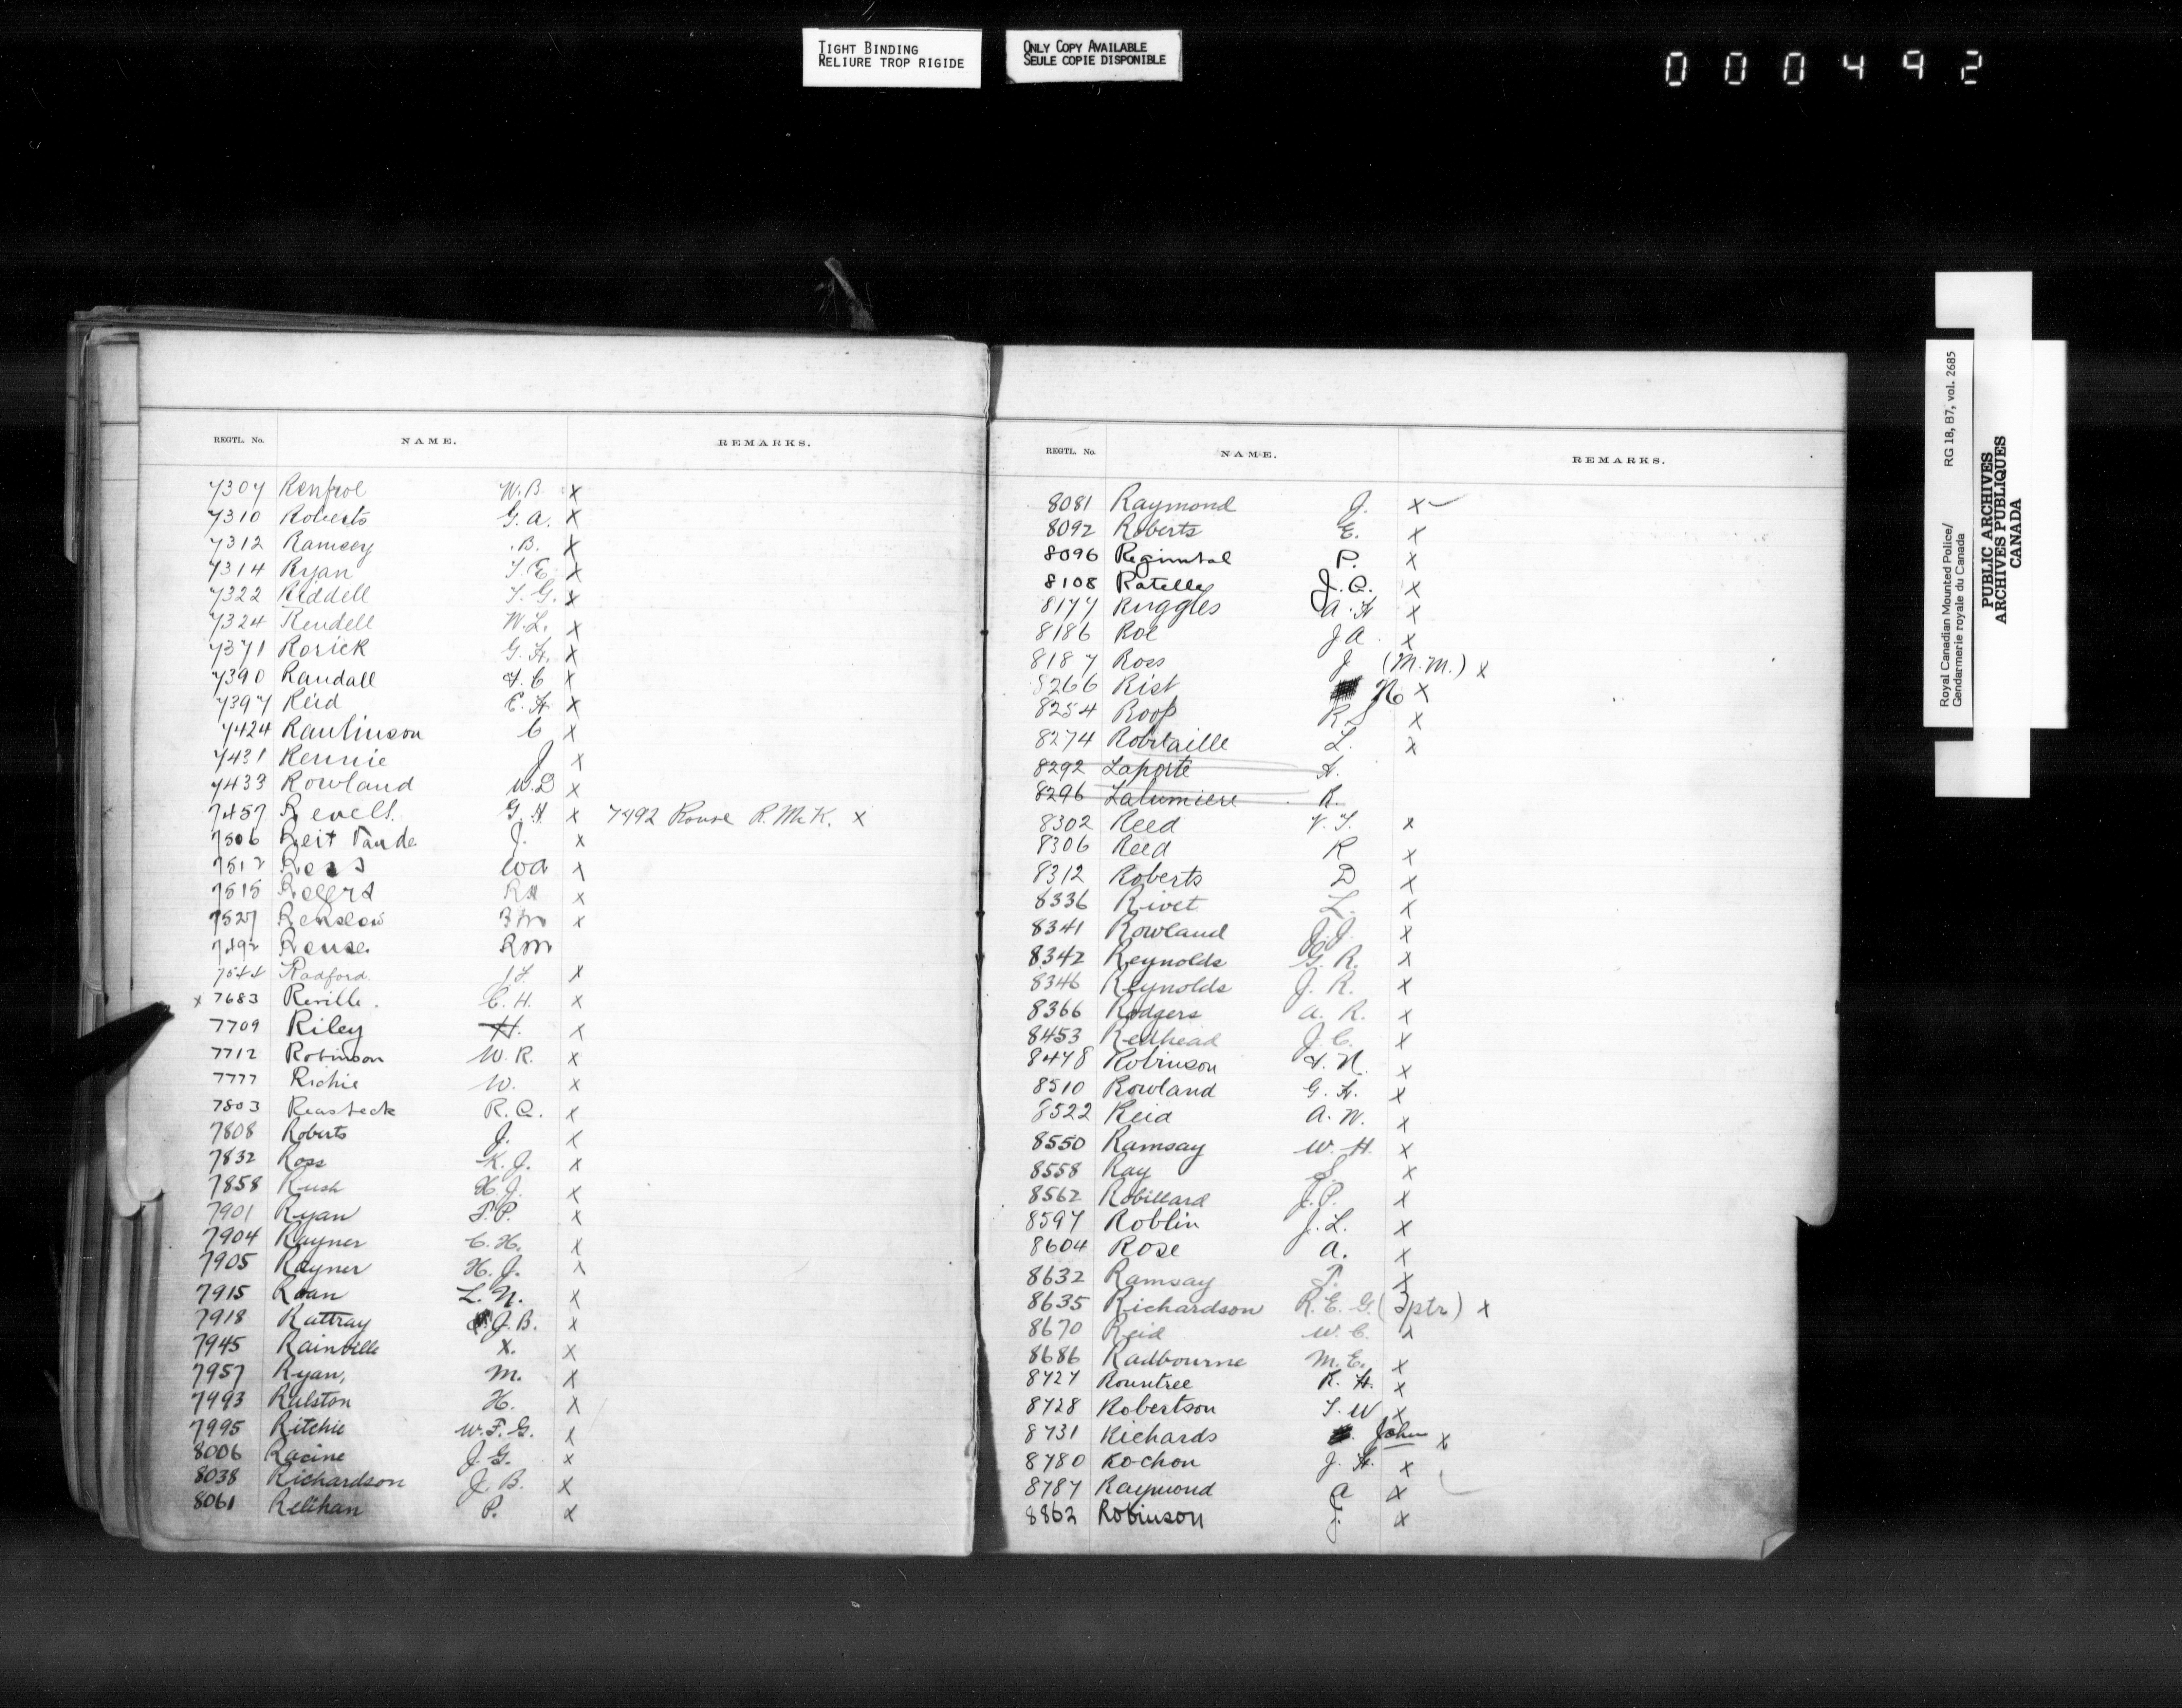 TIGHT BINDING
RELIURE TROP RIGIDE
ONLY COPY AVAILABLE
SEULE COPIE DISPONIBLE
000492
REGTL. No. NAME. REMARKS.
7307 Renfroe W.B. x
7310 Roberts G.A. x
7312 Ramsey B. x
7314 Ryan T.E. x
7322 Riddell T.G. x
7324 Rendell W.L. x
7371 Rorick G.H. x
7390 Randall F.C x
7397 Reid E.H x
7424 Rawlinson C x
7431 Rennie J x
7433 Rowland W.D x
7457 Revell. G.H x 7492 Rouse R.McK. x
7506 Reit J. x
7512 Ross WA x
7515 Rogers x
7527 Renslow x
7492 Rouse RM
7544 Radford x
x 7683 Reville. C.H. x
7709 Riley H. x
7712 Robinson W.R. x
7777 Richie W. x
7803 Reasbeck R.Q. x
7808 Roberts J. x
7832 Ross K.J. x
7858 Rush H.J. x
7901 Ryan T.P. x
7904 Rayner C.H. x
7905 Rayner H.J. x
7915 Roan L.N. x
7918 Rattray J.B. x
7945 Rainville X. x
7957 Ryan, M. x
7993 Ralston H. x
7995 Ritchie W.F.G. x
8006 Racine J.G. x
8038 Richardson J.B. x
8061 Relihan P. x
REGTL. No. NAME. REMARKS.
8081 Raymond J. x
8092 Roberts E. x
8096 Regimbal P. x
8108 Ratelle J.Q. x
8177 Ruggles A.H x
8186 Roe JA. x
8187 Ross J (M.M.) x
8266 Rist N x
8254 Roop R.S x
8274 Robitaille L. x
8292 Laporte H.
8296 Lalumiere R.
8302 Reed V.T. x
8306 Reed R x
8312 Roberts D x
8336 Rivet L. x
8341 Rowland J.J. x
8342 Reynolds G.R. x
8346 Reynolds J.R. x
8366 Rodgers A.R. x
8453 Redhead J.C. x
8478 Robinson F.N. x
8510 Rowland G.H. x
8522 Reid A.W. x
8550 Ramsay W.H. x
8558 Ray S. x
8562 Robillard J.P. x
8597 Roblin J.L. x
8604 Rose A. x
8632 Ramsay T. x
8635 Richardson R.E.G. x
8670 Reid W.C. x
8686 Radbourne M.E. x
8727 Rountree R.H. x
8728 Robertson T.W x
8731 Richards John x
8780 Rochon J.H. x
8787 Raymond A x
8862 Robinson J. x
Royal Canadian Mounted Police/ RG 18, B7, vol. 2685
Gendarmerie royale du Canada
PUBLIC ARCHIVES
ARCHIVES PUBLIQUES
CANADA